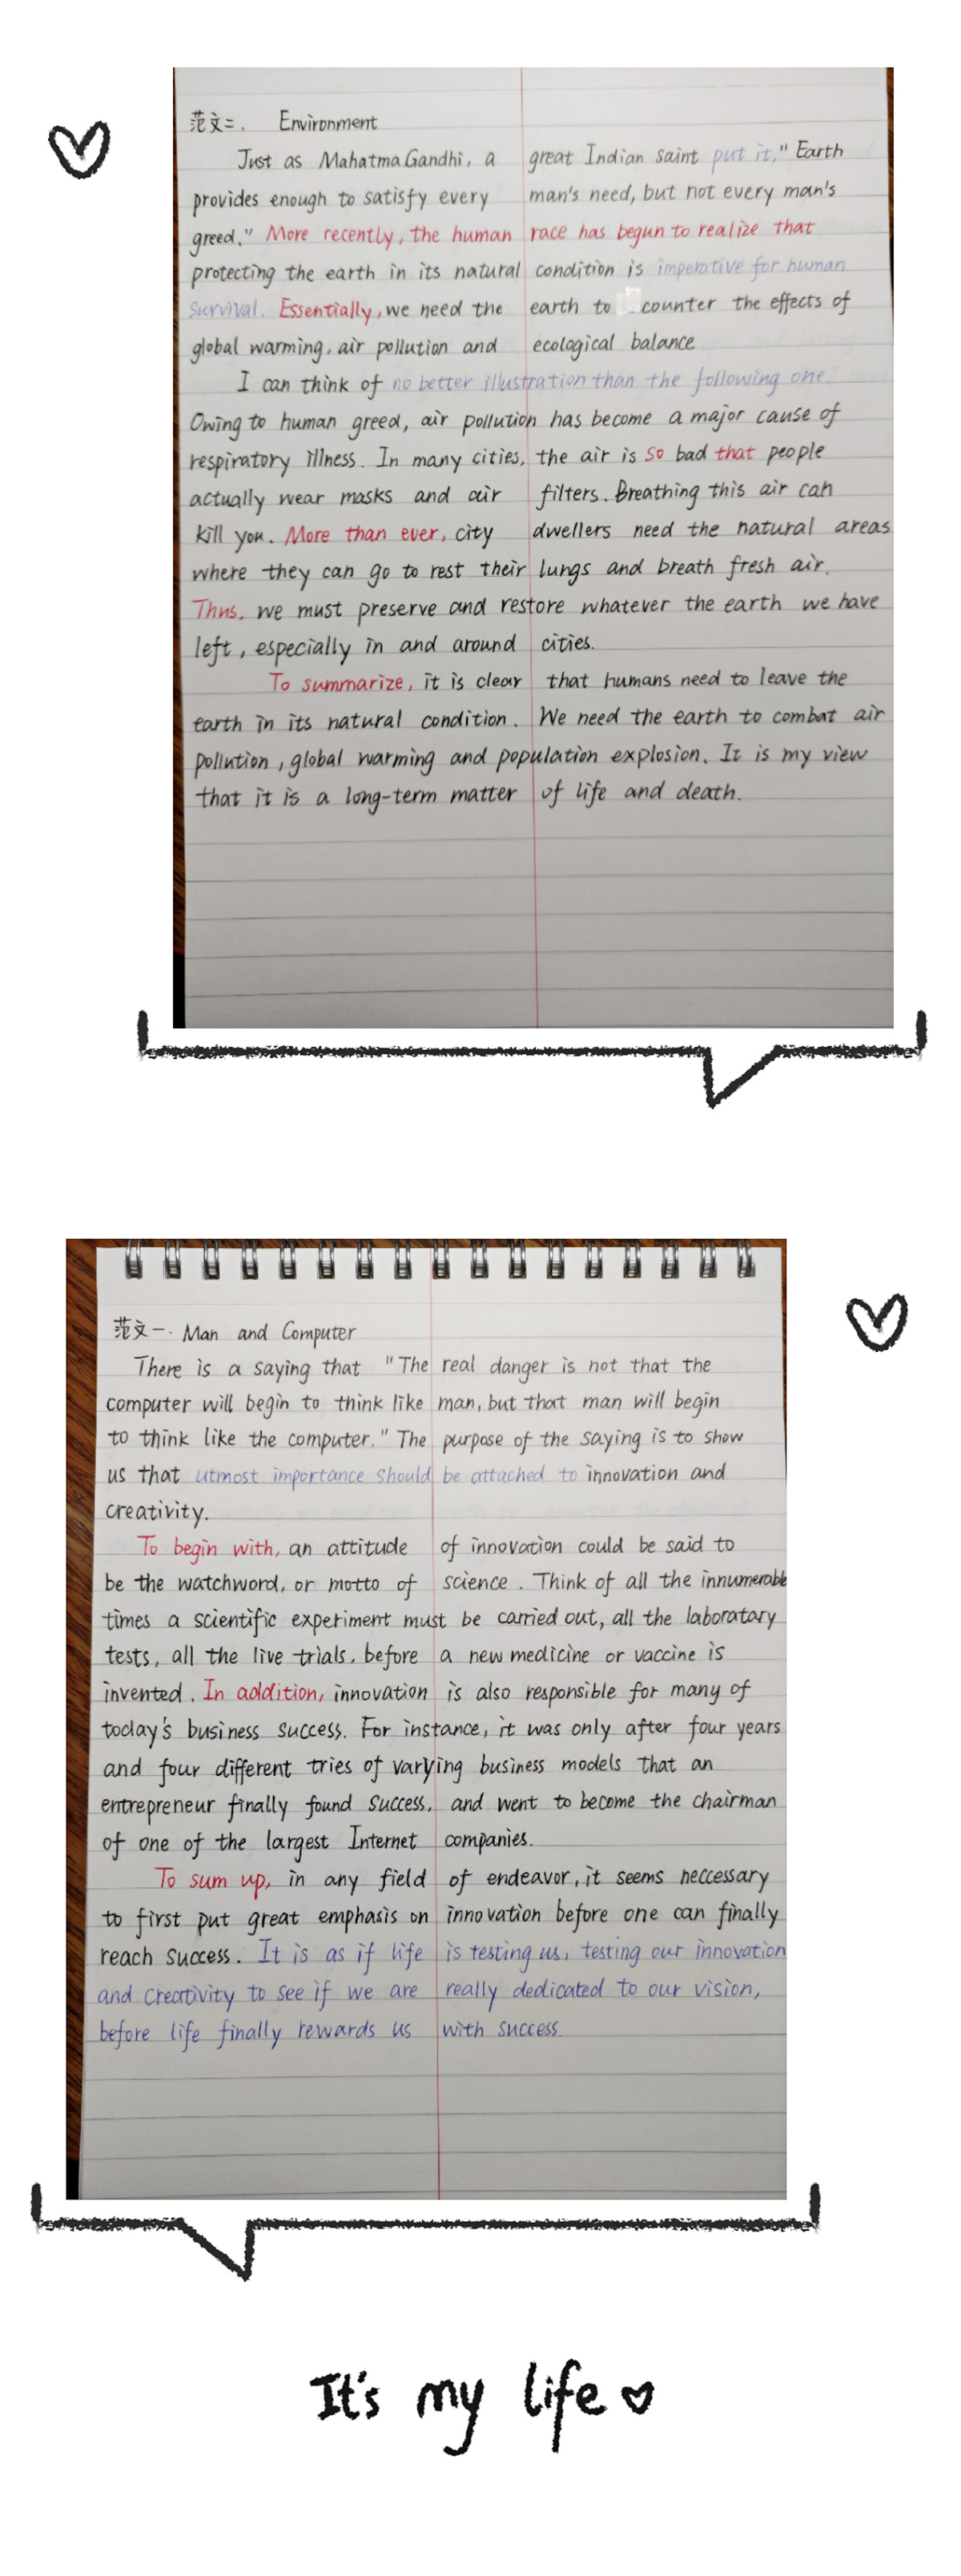 范文二. Environment
Just as Mahatma Gandhi, a great Indian saint put it, "Earth
provides enough to satisfy every man's need, but not every man's
greed." More recently, the human race has begun to realize that
protecting the earth in its natural condition is imperative for human
survival. Essentially, we need the earth to counter the effects of
global warming, air pollution and ecological balance
I can think of no better illustration than the following one.
Owing to human greed, air pollution has become a major cause of
respiratory illness. In many cities, the air is so bad that people
actually wear masks and air filters. Breathing this air can
kill you. More than ever, city dwellers need the natural areas
where they can go to rest their lungs and breath fresh air.
Thus, we must preserve and restore whatever the earth we have
left, especially in and around cities.
To summarize, it is clear that humans need to leave the
earth in its natural condition. We need the earth to combat air
pollution, global warming and population explosion. It is my view
that it is a long-term matter of life and death.
范文一. Man and Computer
There is a saying that "The real danger is not that the
computer will begin to think like man, but that man will begin
to think like the computer." The purpose of the saying is to show
us that utmost importance should be attached to innovation and
creativity.
To begin with, an attitude of innovation could be said to
be the watchword, or motto of science. Think of all the innumerable
times a scientific experiment must be carried out, all the laboratary
tests, all the live trials, before a new medicine or vaccine is
invented. In addition, innovation is also responsible for many of
today's business success. For instance, it was only after four years
and four different tries of varying business models that an
entrepreneur finally found success, and went to become the chairman
of one of the largest Internet companies.
To sum up, in any field of endeavor, it seems neccessary
to first put great emphasis on innovation before one can finally
reach success. It is as if life is testing us, testing our innovation
and creativity to see if we are really dedicated to our vision,
before life finally rewards us with success.
It's my life